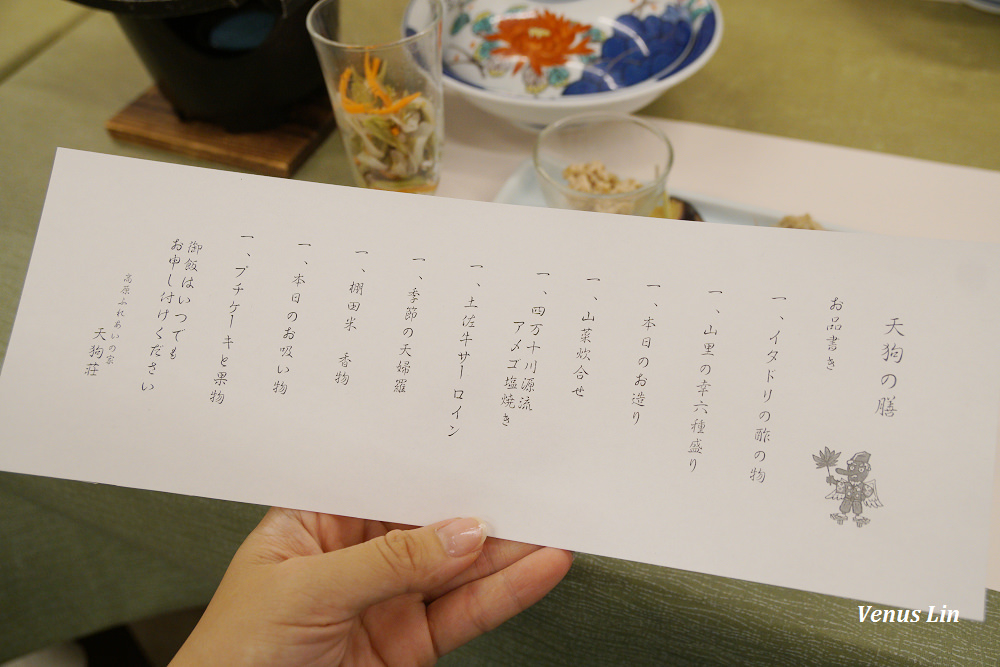 天狗の膳
お品書き
一、イタドリの酢の物
一、山里の幸六種盛り
一、本日のお造り
一、山菜炊合せ
一、四万十川源流
アメゴ塩焼き
一、土佐牛サーロイン
一、季節の天婦羅
一、棚田米　香物
一、本日のお吸い物
一、プチケーキと果物
御飯はいつでも
お申し付けください
高原ふれあいの家
天狗荘
Venus Lin